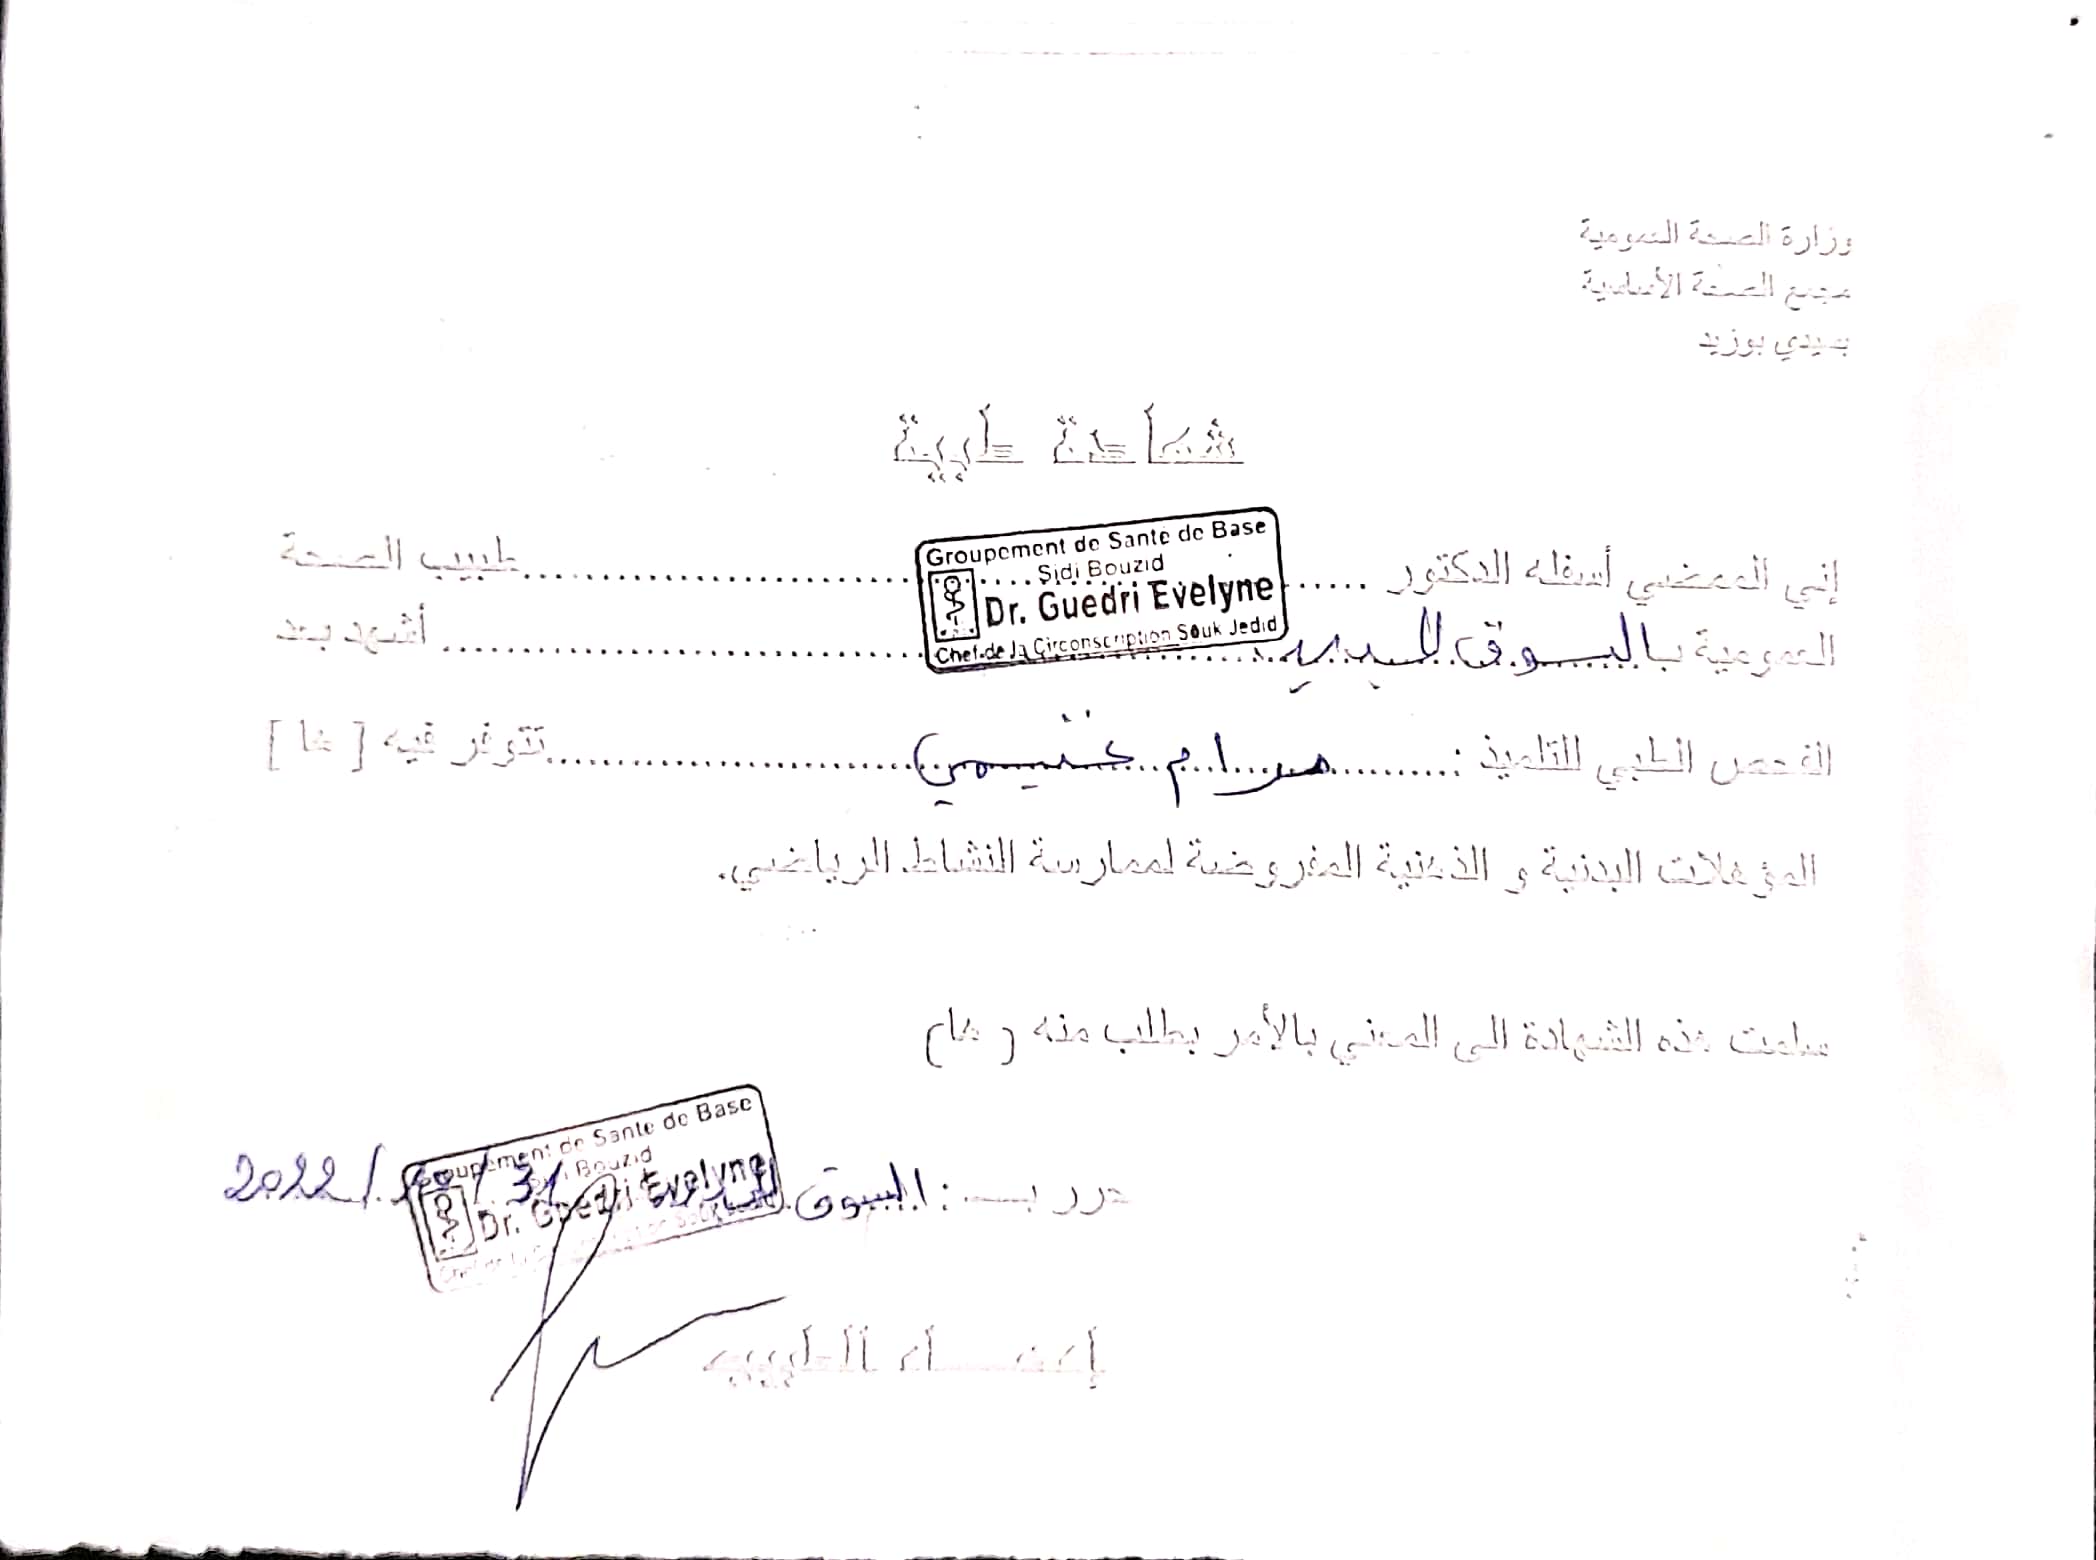 وزارة الصحة العمومية
مجمع الصحة الأساسية
بسيدي بوزيد
شهادة طبية
Groupement de Santé de Base
Sidi Bouzid
Dr. Guedri Evelyne
Chef de la Circonscription Souk Jedid
إني الممضي أسفله الدكتور .......... طبيب الصحة
العمومية بالسوق الجديد .......... أشهد بعد
الفحص الطبي للتلميذ : ..... مرام .......... تتوفر فيه [ ها ]
المؤهلات البدنية و الذهنية المفروضة لممارسة النشاط الرياضي.
سلمت هذه الشهادة الى المعني بالأمر بطلب منه ( ها)
حرر بـ : السوق 31 / 2022
Groupement de Santé de Base
Sidi Bouzid
Dr. Guedri Evelyne
إمضاء الطبيب